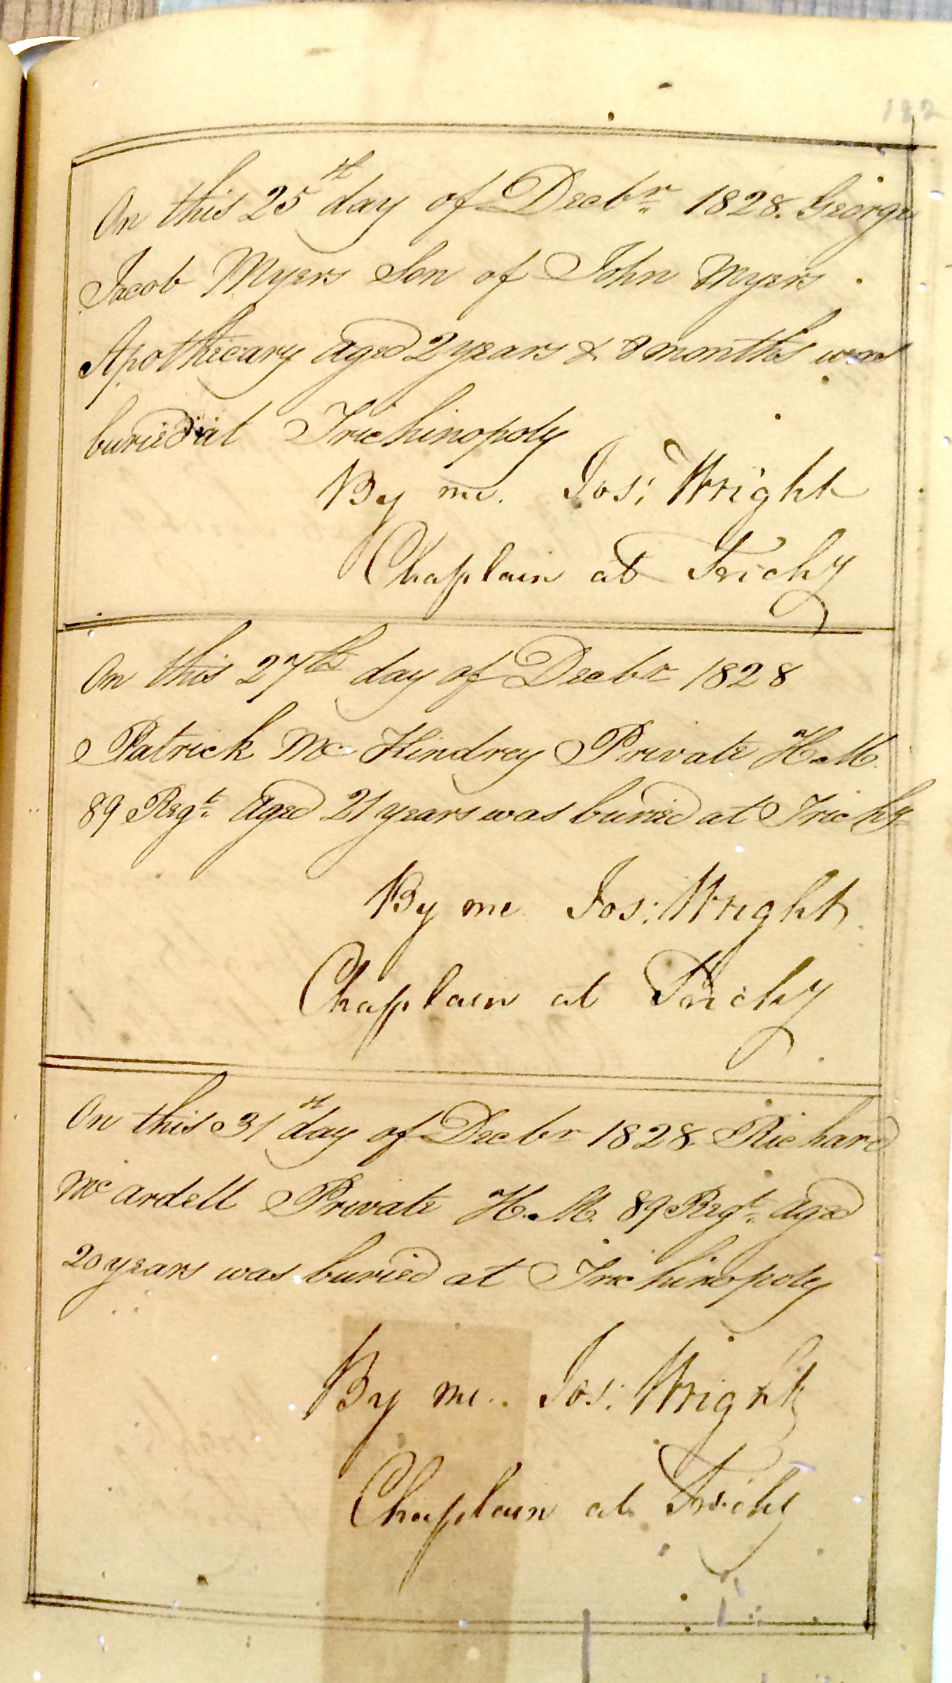 182
On this 25th day of Decbr. 1828. George
Jacob Myers Son of John Myers
Apothecary aged 2 years & 8 months was
buried at Trichinopoly
By me. Jos: Wright
Chaplain at Trichy
On this 27th day of Decbr 1828
Patrick Mc Kindrey Private H.M.
89 Regt. aged 21 years was buried at Trichy
By me Jos: Wright
Chaplain at Trichy
On this 31st day of Decbr 1828 Richard
Mc ardell Private H.M. 89 Regt. aged
20 years was buried at Trichinopoly
By me. Jos: Wright
Chaplain at Trichy